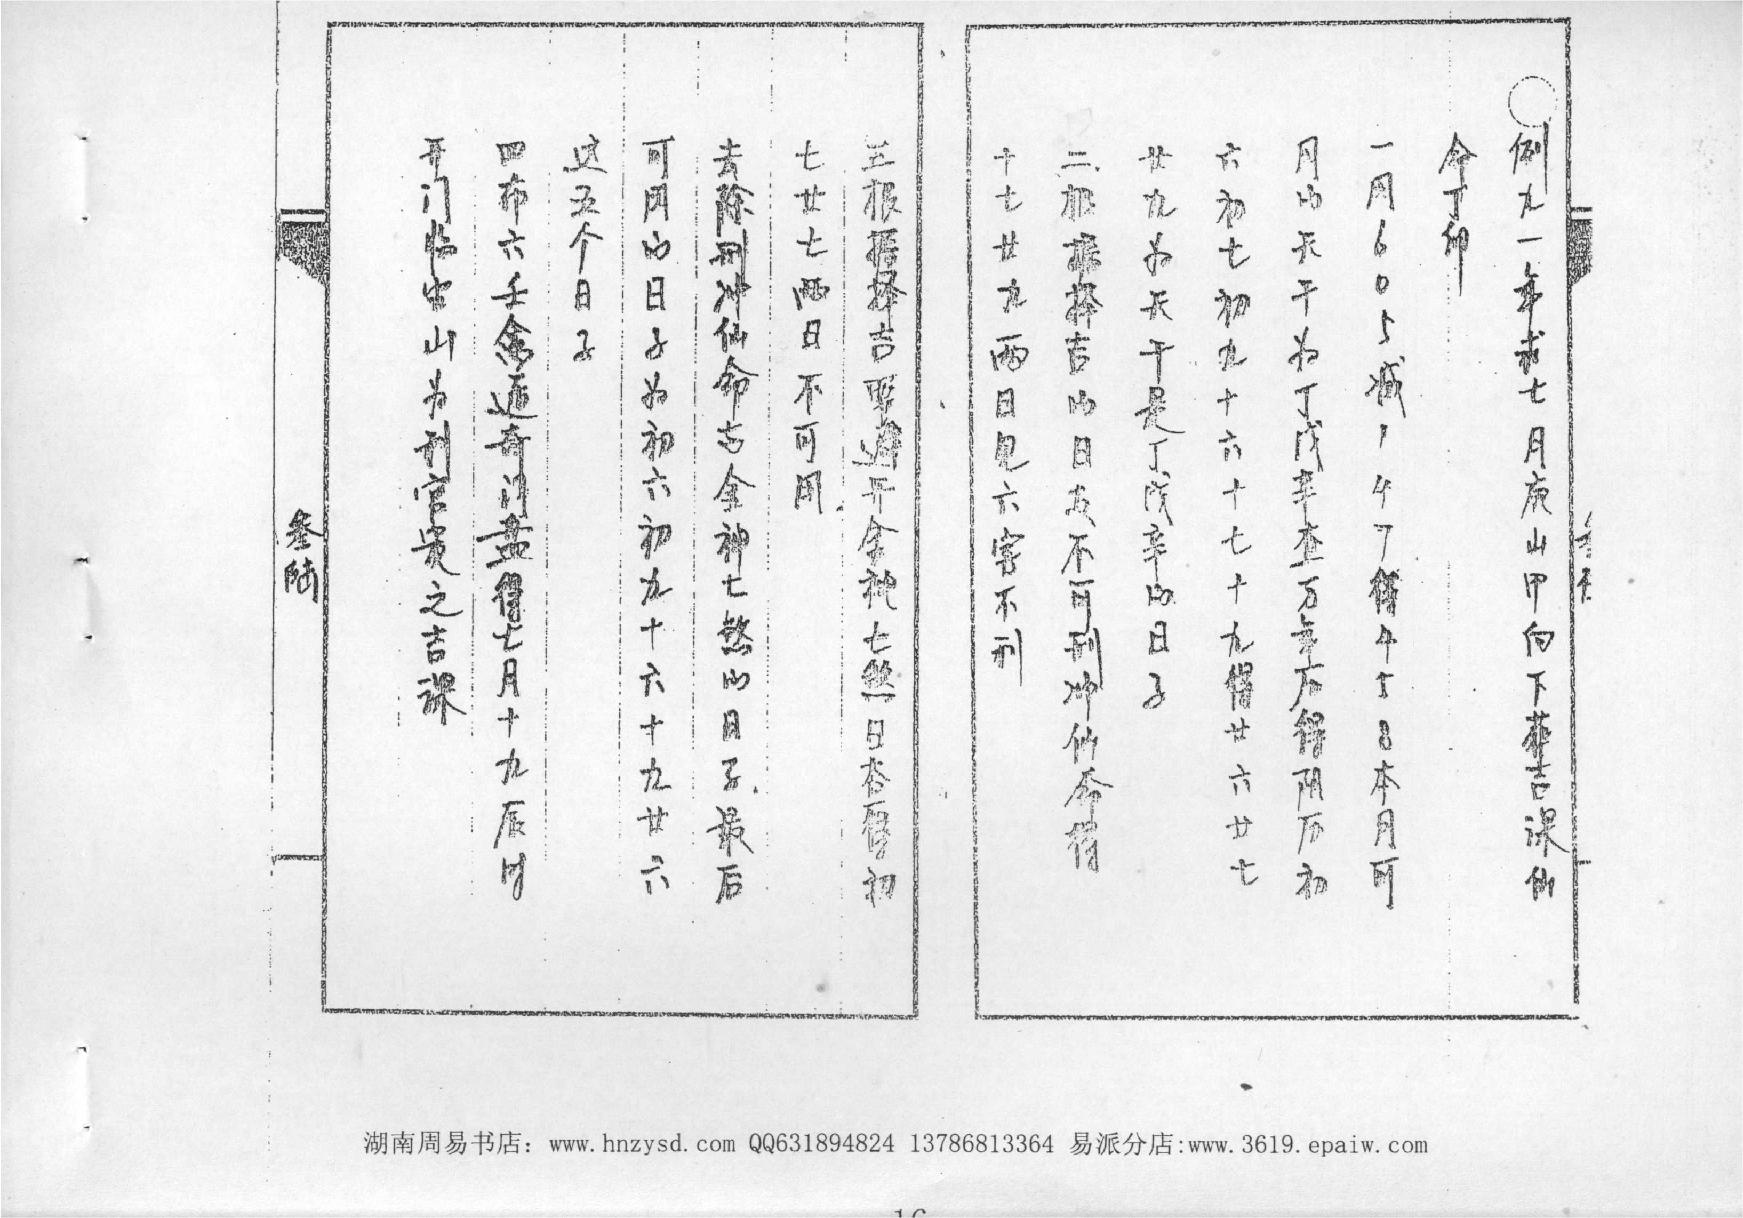 例九一年求七月庚山甲向下葬吉课仙
命丁卯
一月605减147得458本月可
用的天干为丁戊辛查万年后得阴历初
六初七初九十六十七十九得廿六廿七
廿九为天干是丁戊辛的日子
二根据择吉的日支不可刑冲仙命得
十七廿九两日见六害不刑
三根据择吉要避开金神七煞日查历初
七廿七两日不可用
去除刑冲仙命古金神七煞的日子最后
可用的日子为初六初九十六十九廿六
这五个日子
四布六壬禽遁奇门盘得七月十九辰时
开门临坐山为刑官贵之吉课
叁陆
湖南周易书店：www.hnzysd.com QQ631894824 13786813364 易派分店:www.3619.epaiw.com
16